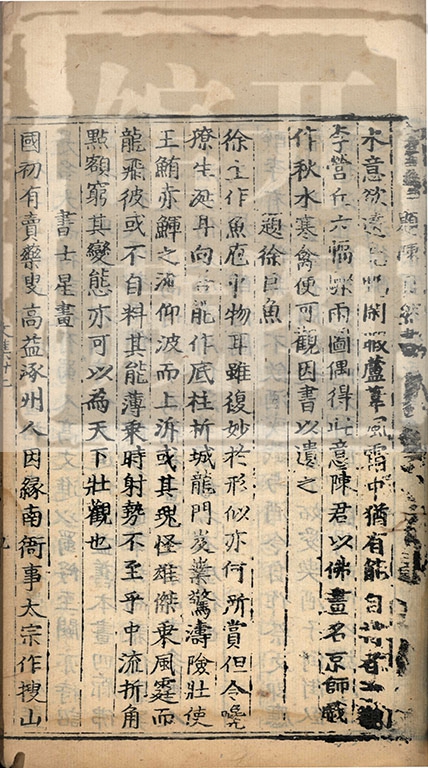 題陳自然畫
水意欲遠鳧鴨閑暇蘆葦風霜中猶有能自持者
李營丘六幅驟雨圖偶得此意陳君以佛畫名京師戲
作秋水寒禽便可觀因書以遺之
題徐巨魚
徐生作魚庖中物耳雖復妙於形似亦何所賞但令嚵
獠生涎耳向若能作底柱析城龍門岌嶪驚濤險壯使
王鮪赤鱓之流仰波而上泝或其瑰怪雄傑乘風霆而
龍飛彼或不自料其能薄乘時射勢不至乎中流折角
點額窮其變態亦可以為天下壯觀也
書士星畫
國初有賣藥叟高益涿州人因緣南衙事太宗作搜山